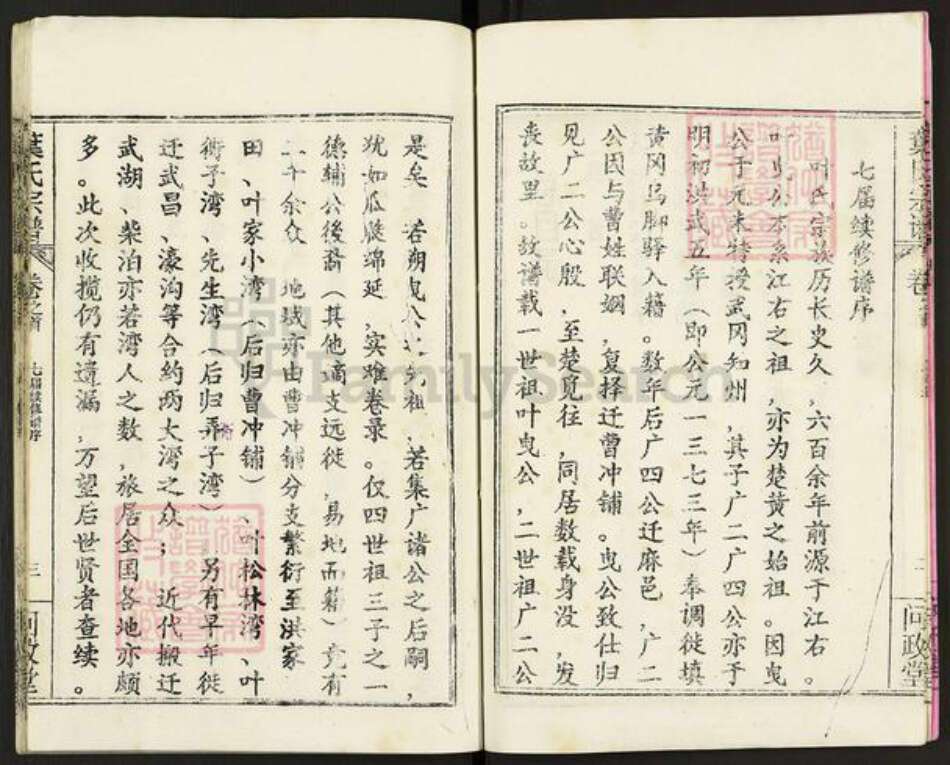 七届续修谱序
叶氏宗族历长史久，六百余年前源于江右。
叶曳公本系江右之祖，亦为楚黄之始祖。因曳
公于元末特授武冈知州，其子广二广四公亦于
明初洪武五年（即公元一三七三年）奉调徙填
黄冈马脚驿入籍。数年后广四公迁麻邑，广二
公因与曹姓联姻，复择迁曹冲铺。曳公致仕归
见广二公心殷，至楚觅往，同居数载身没，发
丧故里。故谱载一世祖叶曳公，二世祖广二公
是矣。若朔曳公之先祖，若集广诸公之后嗣，
犹如瓜瓞绵延，实难卷录。仅四世祖三子之一
德辅公後裔（其他嫡支远徙，易地而籍）竟有
二千余众，地域亦由曹冲铺分支繁衍至洪家
田、叶家小湾（后归曹冲铺）、叶松林湾、叶
衖子湾、先生湾（后归弄子湾）另有早年徙
迁武昌、濠沟等合约两大湾之众；近代搬迁
武湖、柴泊亦若湾人之数，旅居全国各地亦颇
多。此次收揽仍有遗漏，万望后世贤者查续。
葉氏宗譜
卷之首
七届续修谱序
三
问政堂
葉氏宗譜
卷之首
问政堂
FamilySearch